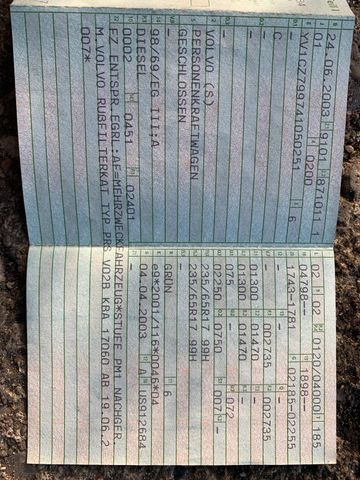 24.06.2003 9101 871011 1
01 0200
YV1CZ799741050251 6
-
C -
- -
VOLVO (S)
PERSONENKRAFTWAGEN
GESCHLOSSEN
-
98/69/EG III;A
DIESEL
0002 0451 02401
FZ.ENTSPR.EGRL:AF=MEHRZWECKFAHRZEUG*STUFE PM1 NACHGER.
M.VOLVO RUßFILTERKAT TYP PRS V02B KBA 17060 AB 19.06.2
007*
02 02 0120/04000 185
04798-- 1898--
1743-1781 02185-02255
- 002735 002735
01300 01470 -
01300 01470 -
075 - 072
02250 0750 007 -
235/65R17 99H
235/65R17 99H
-
GRÜN 6
e9*2001/116*0046*04
04.04.2003 A US912684
-